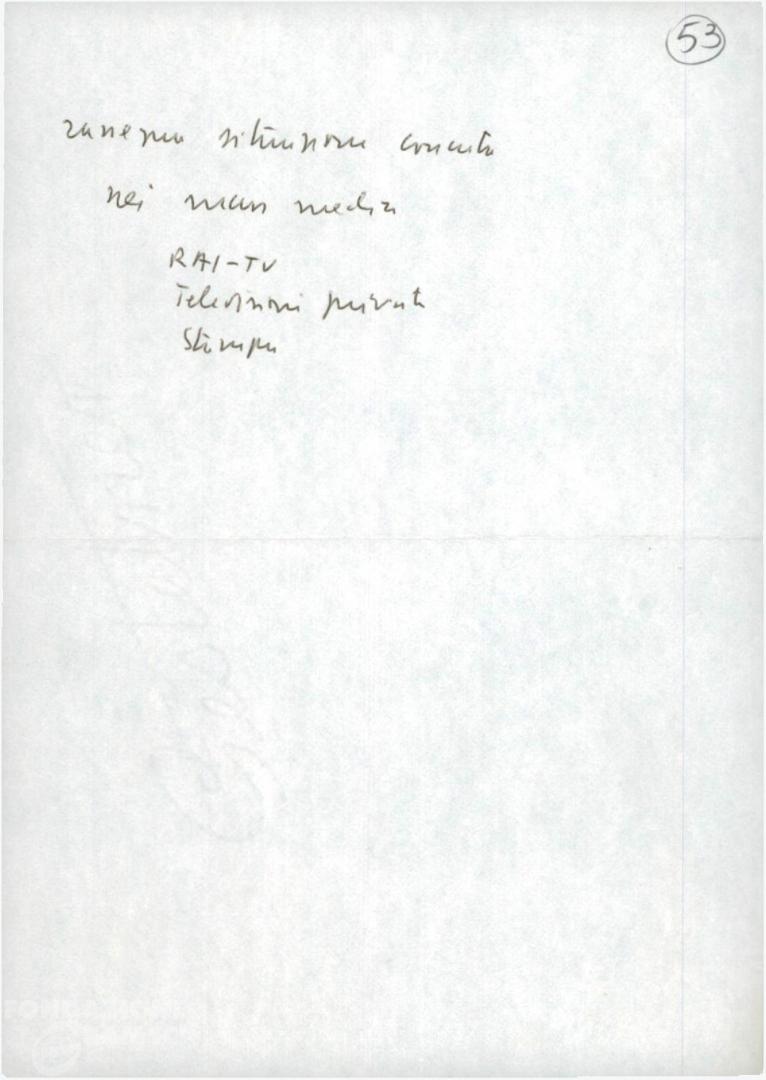 53
rassegna situazione concreta
nei mass media
RAI-TV
Televisioni private
Stampa